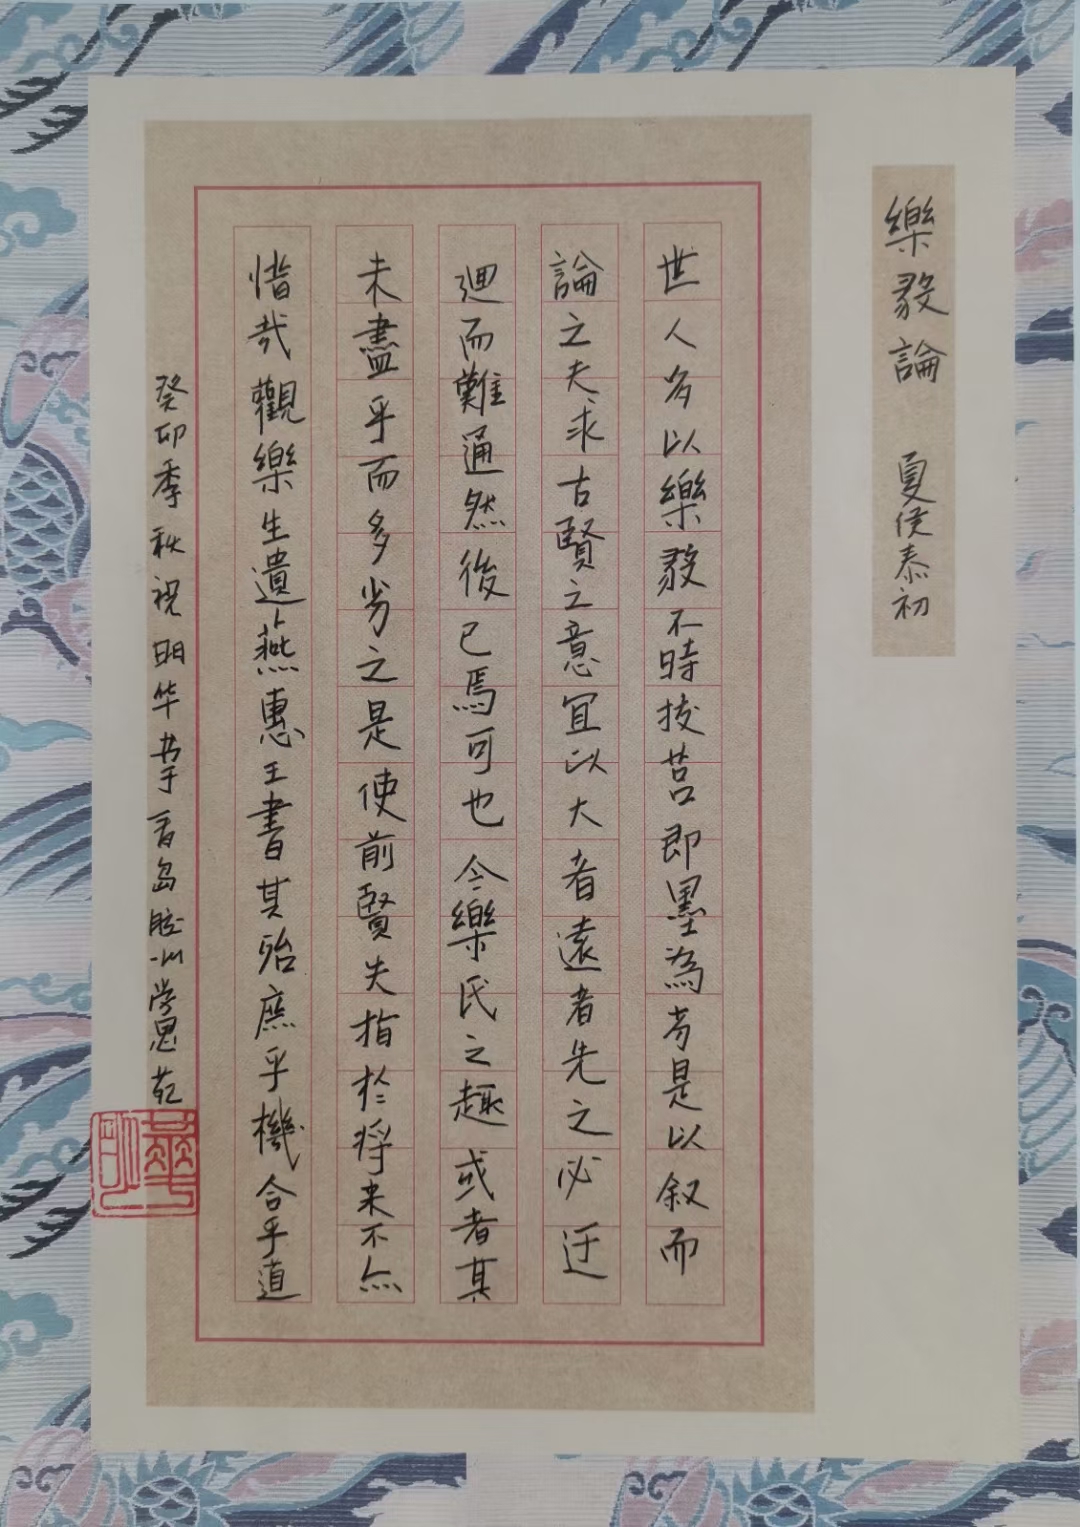 樂毅論 夏侯泰初
世人多以樂毅不時拔莒即墨為劣是以叙而
論之夫求古賢之意宜以大者遠者先之必迂
迴而難通然後已焉可也今樂氏之趣或者其
未盡乎而多劣之是使前賢失指於将来不亦
惜哉觀樂生遺燕惠王書其殆庶乎機合乎道
癸卯季秋祝明华书于青岛胶州学思苑
明華